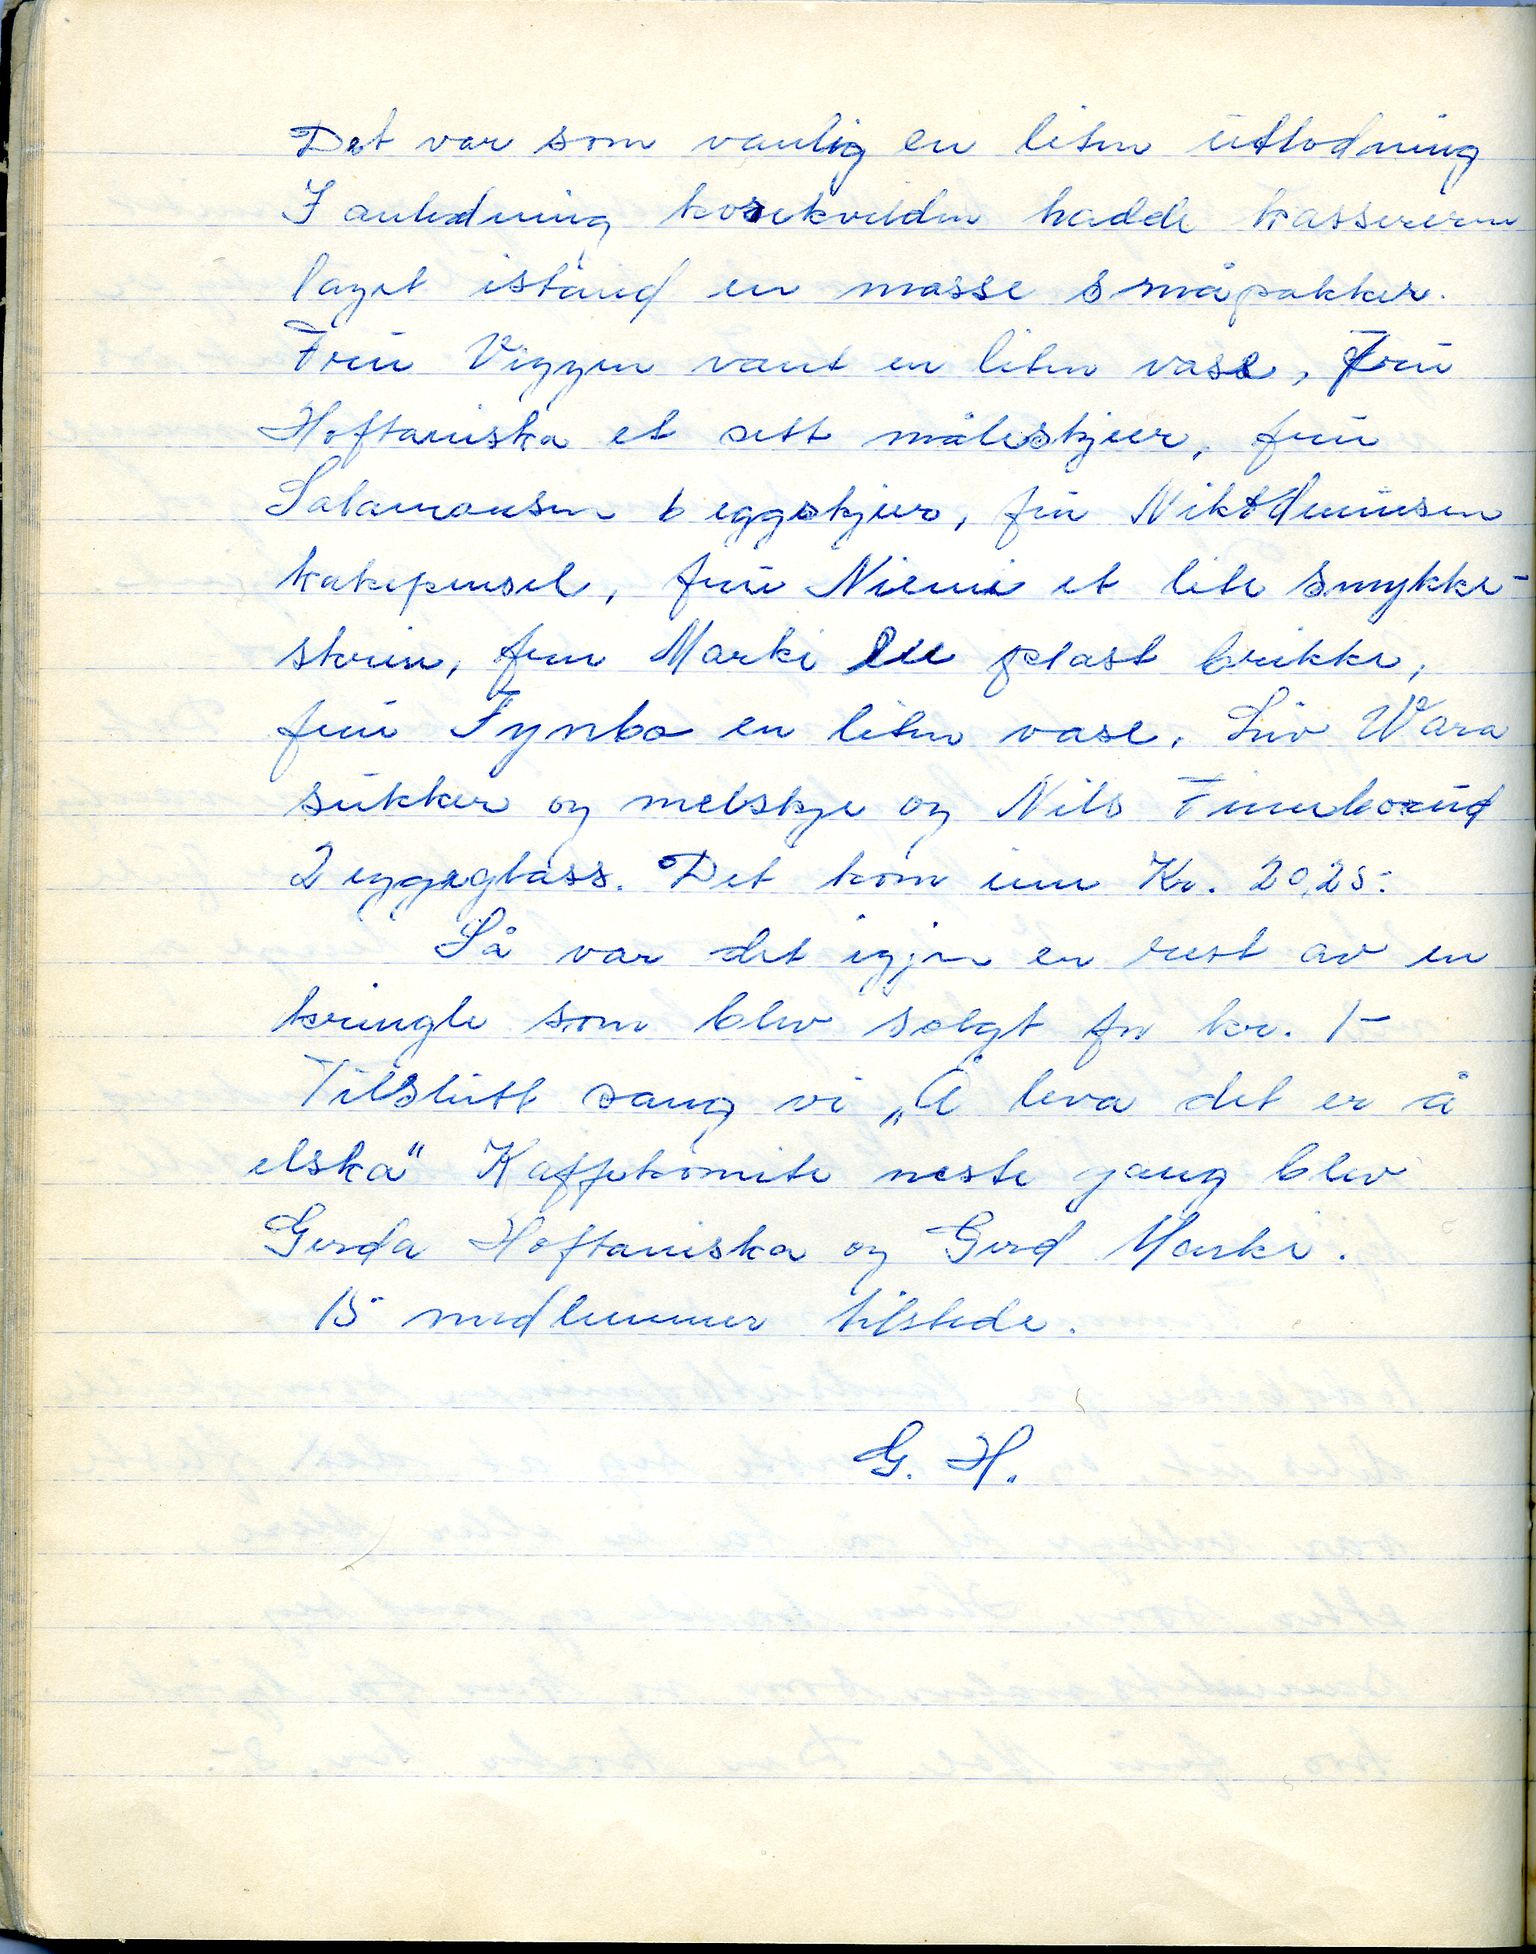 Det var som vanlig en liten utlodning
I anledning kosekvelden hadde kassereren
laget istand en masse småpakker.
Fru Viggen vant en liten vase, fru
Hoftaniska et sett måleskjeer, fru
Salamonsen 6 eggeskjeer, fru Nikodemusen
kakepensel, fru Niemi et lite smykke-
skrin, fru Marki en plast brikke,
fru Fynbo en liten vase, Liv Wara
sukker og melskje og Nils Finnborud
2 eggeglass. Det kom inn Kr. 20,25.
Så var det igjen en rest av en
kringle som blev solgt for kr. 1-
Tilslutt sang vi „Å leva det er å
elska" Kaffekomite neste gang blev
Gerda Hoftaniska og Gerd Marki.
15 medlemmer tilstede.
G. H.